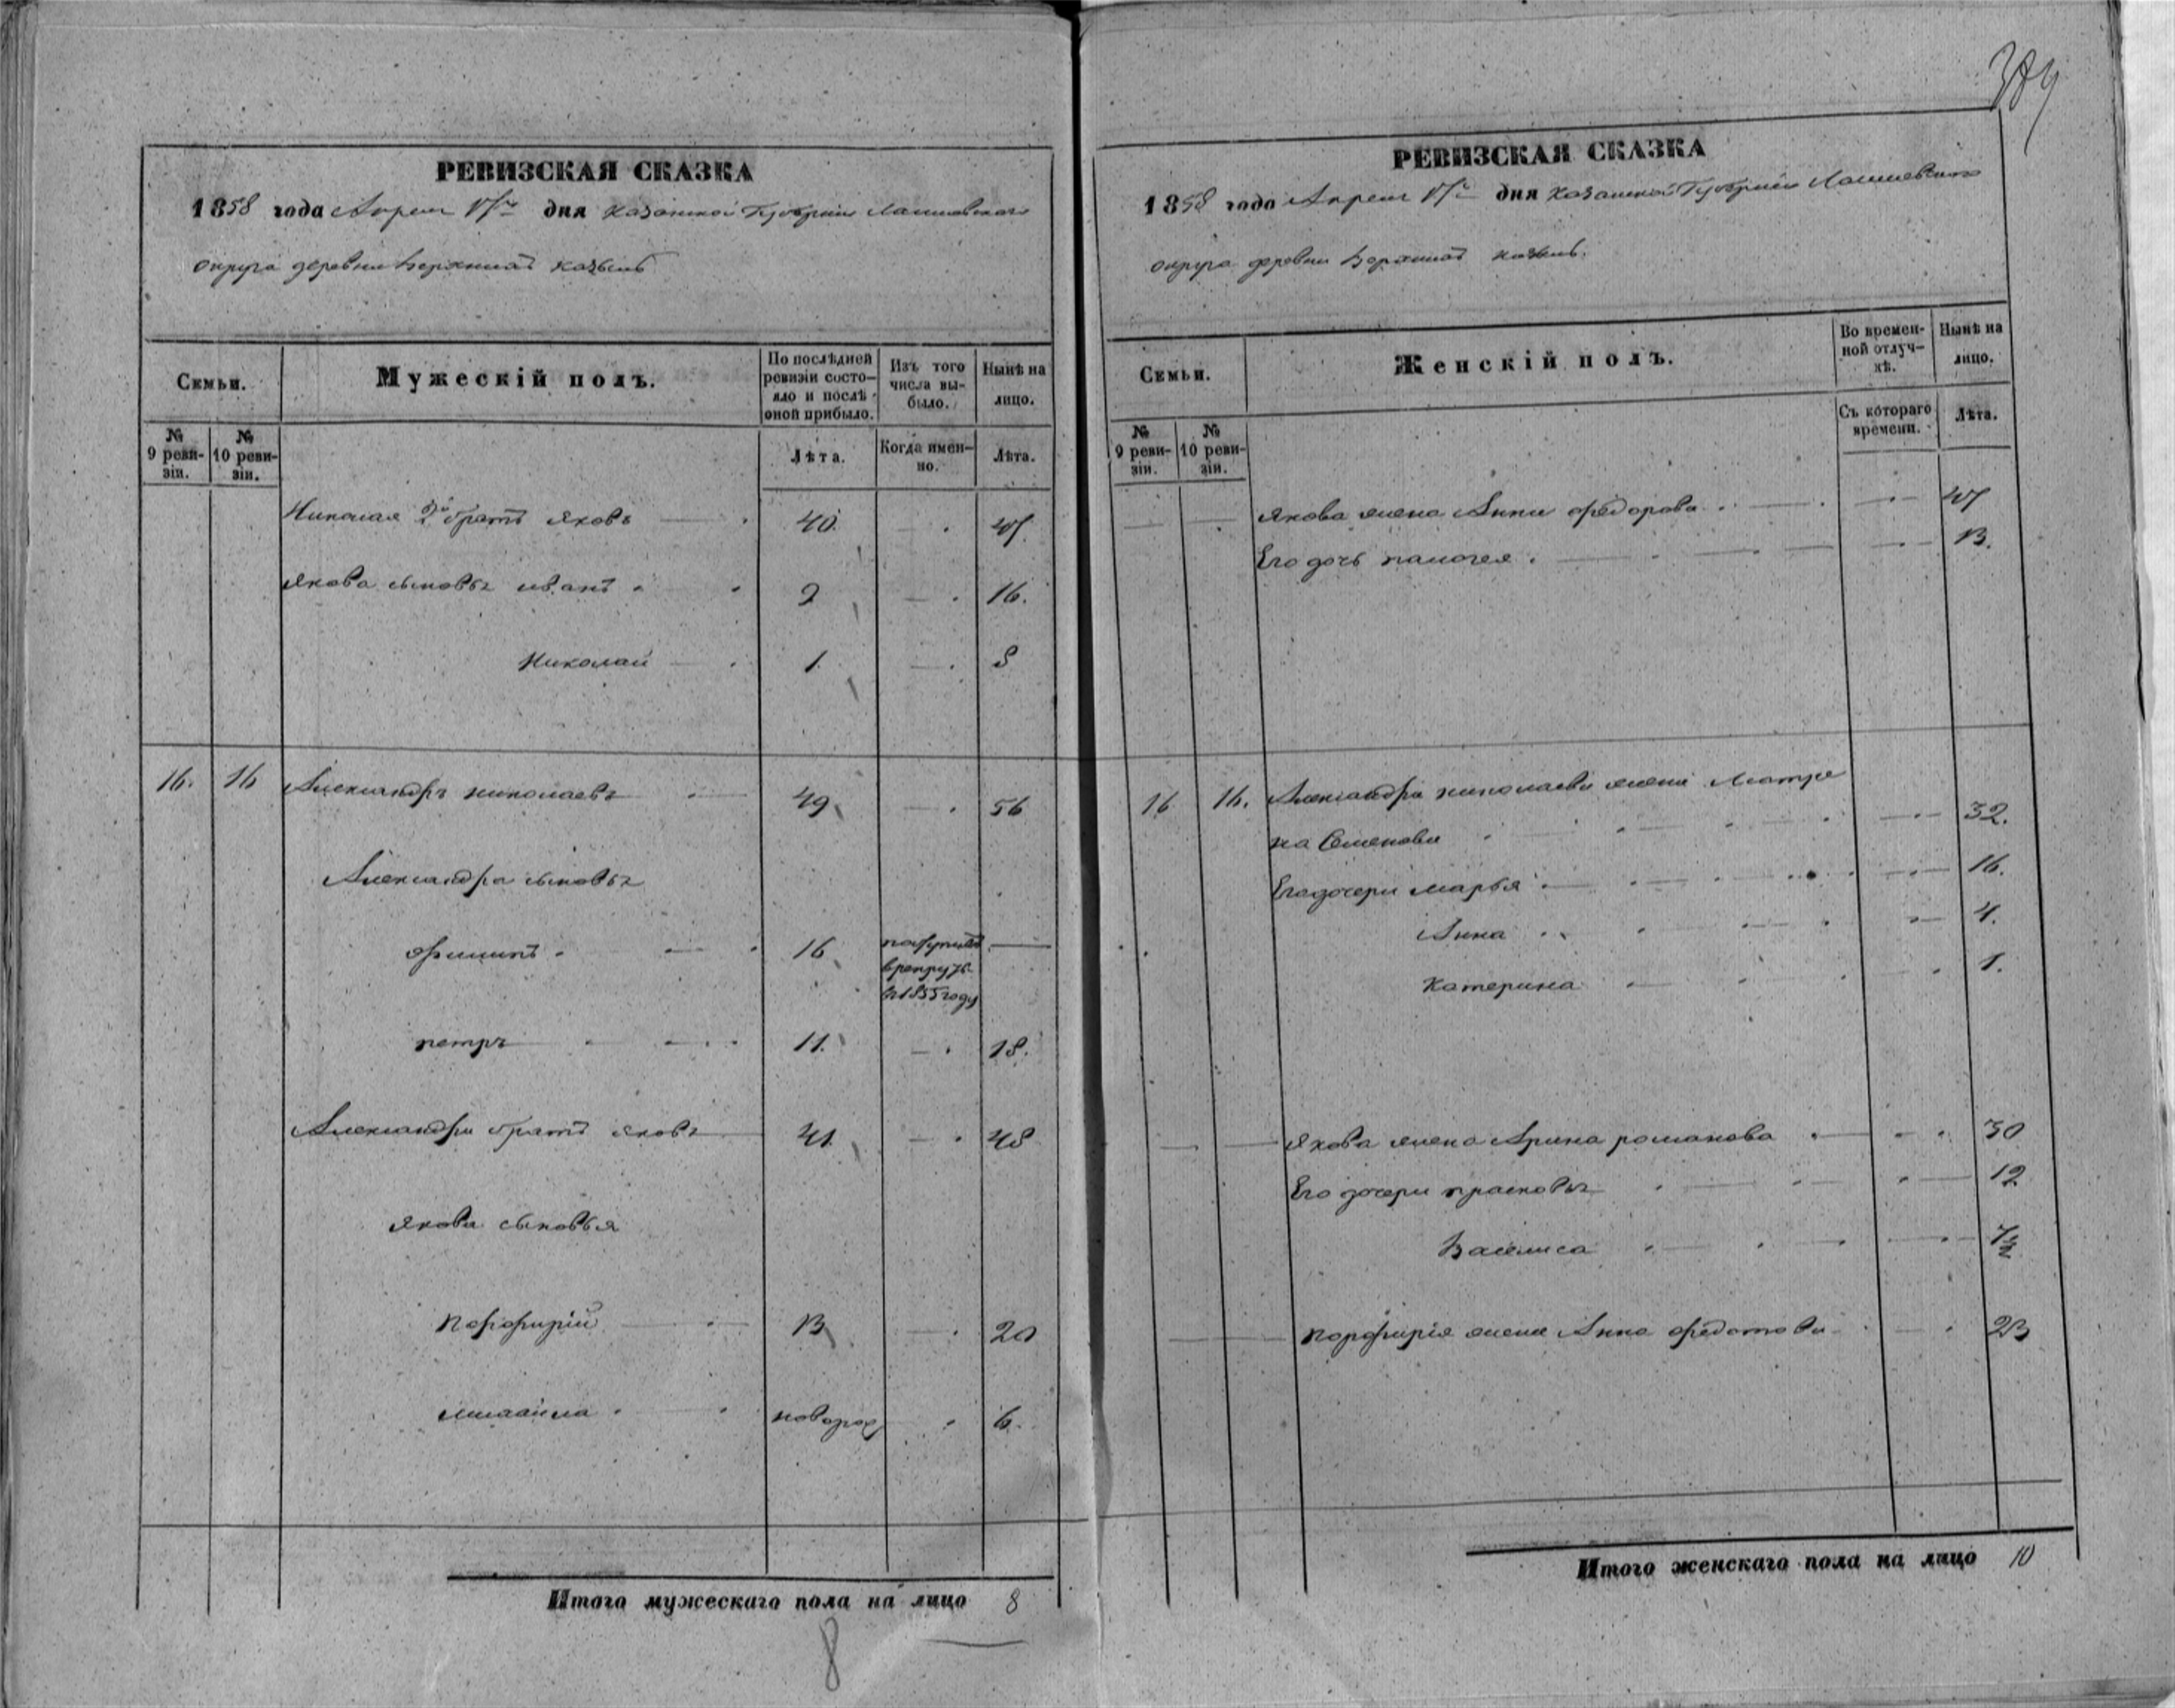 389
РЕВИЗСКАЯ СКАЗКА
1858 года Апреля дня Казанской Губернiи Лаишевского
округа деревни Верхнихъ
Семьи.
Мужескiй полъ.
По послѣдней ревизiи состо-яло и послѣ оной прибыло.
Изъ того числа вы-было.
Нынѣ на лицо.
№ 9 реви-зiи.
№ 10 реви-зiи.
Лѣта.
Когда имен-но.
Лѣта.
Николая 2й братъ Яковъ 40. 47.
Якова сыновья иванъ 9 16.
Николай 1 8
16. 16 Александръ николаевъ 49 56
Александра сыновья
филипъ 16 поступилъ
в рекруты
в 1855 году
петръ 11. 18.
Александра братъ яковъ 41 48
якова сыновья
Порфирiй 13 20
новорож 6.
Итого мужескаго пола на лицо 8
8
РЕВИЗСКАЯ СКАЗКА
1858 года Апреля дня Казанской Губернiи Лаишевского
округа деревни Верхнихъ
Семьи.
Женскiй полъ.
Во времен-ной отлуч-кѣ.
Нынѣ на лицо.
№ 9 реви-зiи.
№ 10 реви-зiи.
Съ котораго времени.
Лѣта.
Якова жена Анна федорова 47
Его дочь 13.
16 16. Александра николаева жена Матре
на Семенова 32.
Его дочери марья 16.
Анна 4.
Катерина 1.
Якова жена Арина романова 30
Его дочери прасковья 12
Василиса
порфирiя жена Анна федотова 23
Итого женскаго пола на лицо 10